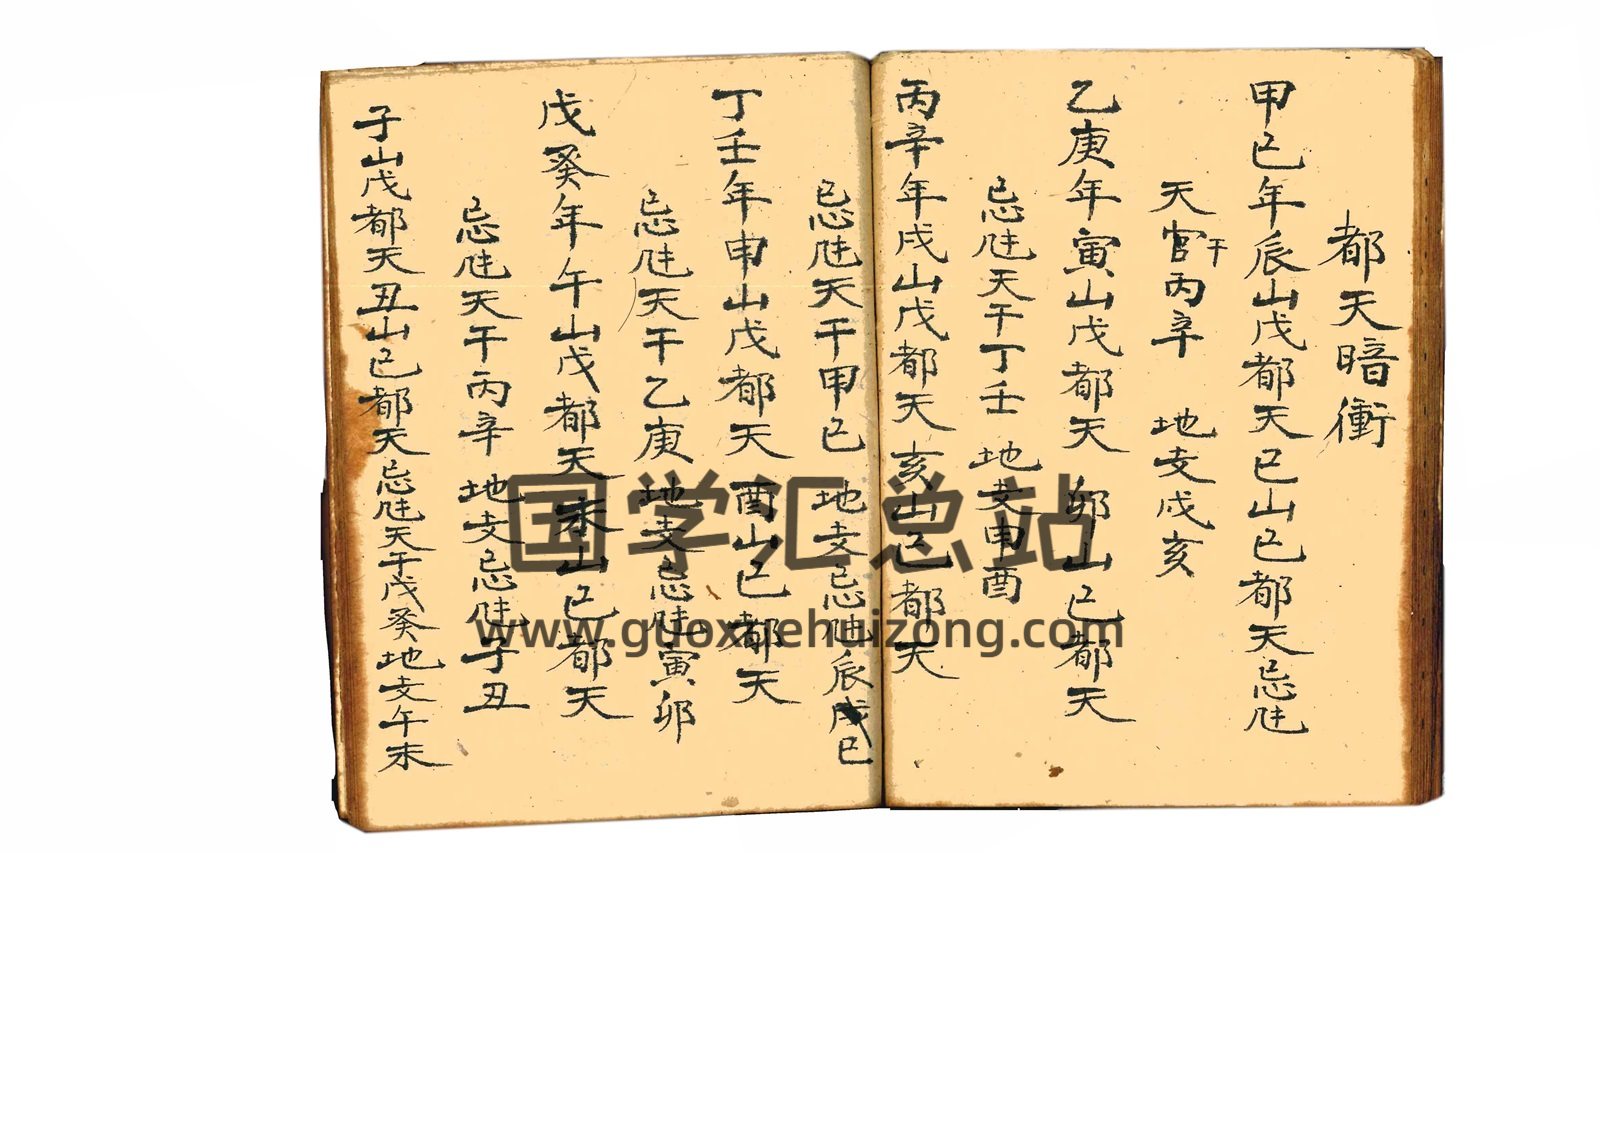 都天暗衝
甲己年辰山戊都天巳山己都天忌
天宮干丙辛 地支戌亥
乙庚年寅山戊都天 卯山己都天
忌 天干丁壬 地支申酉
丙辛年戌山戊都天亥山己都天
忌 天干甲己 地支忌 辰 巳
丁壬年申山戊都天 酉山己都天
忌 天干乙庚 地支忌 寅卯
戊癸年午山戊都天未山己都天
忌 天干丙辛 地支忌 子丑
子山戊都天丑山己都天忌 天干戊癸地支午未
国学汇总站
www.guoxuehuizong.com